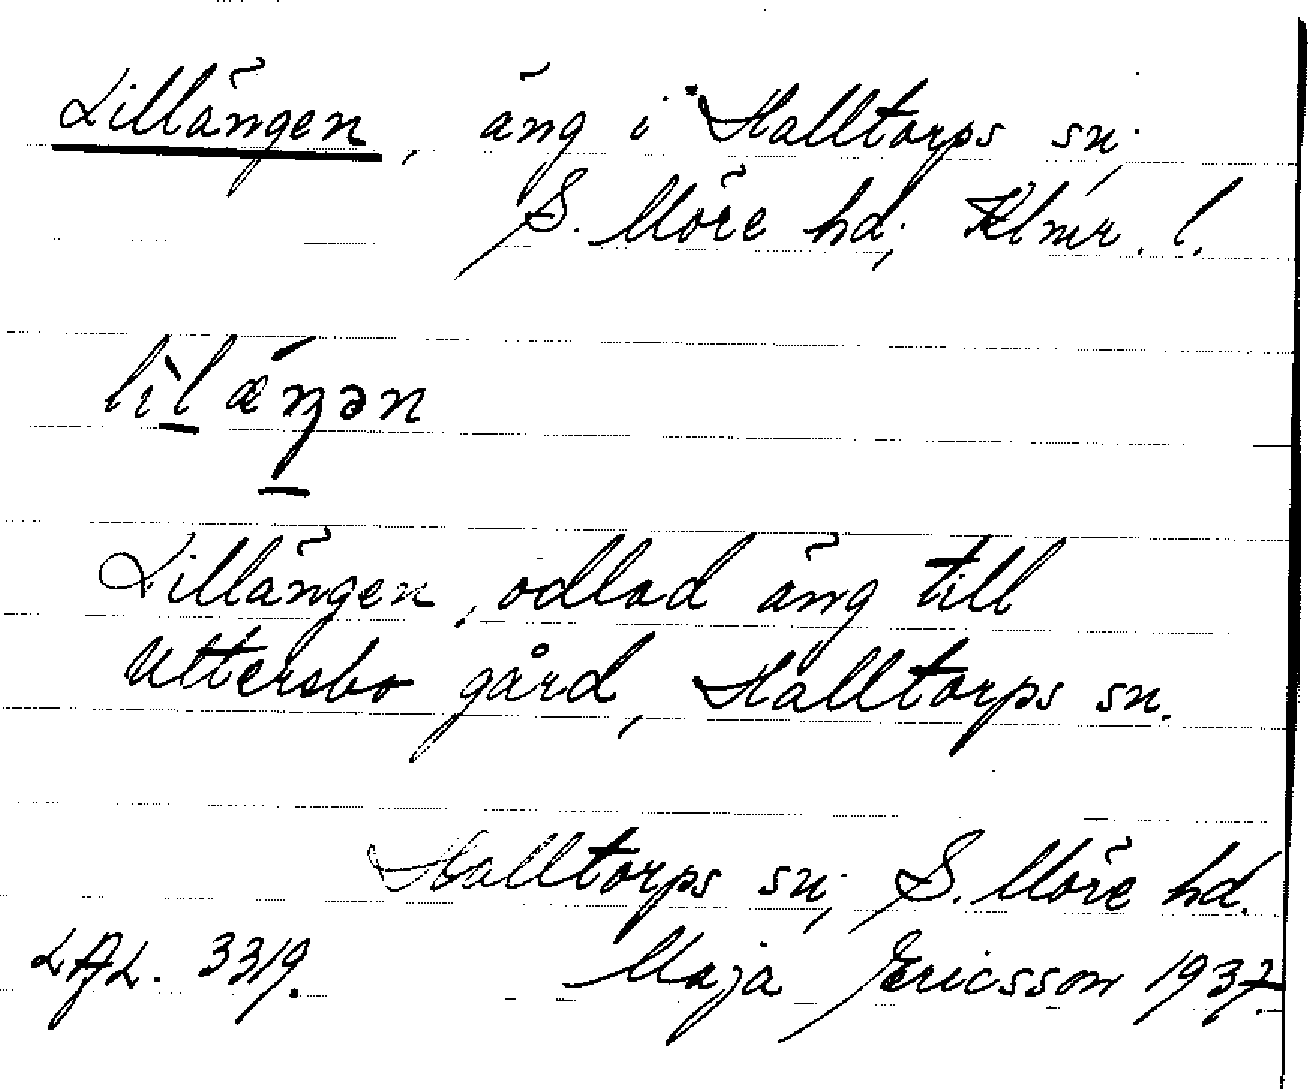 Lillängen, äng i Halltorps sn.,
S. Möre hd., Klmr. l.
lìl ǽŋən
Lillängen, odlad äng till
Uttersbo gård, Halltorps sn.
Halltorps sn., S. Möre hd.
LAL. 3319. Maja Ericsson 1937.